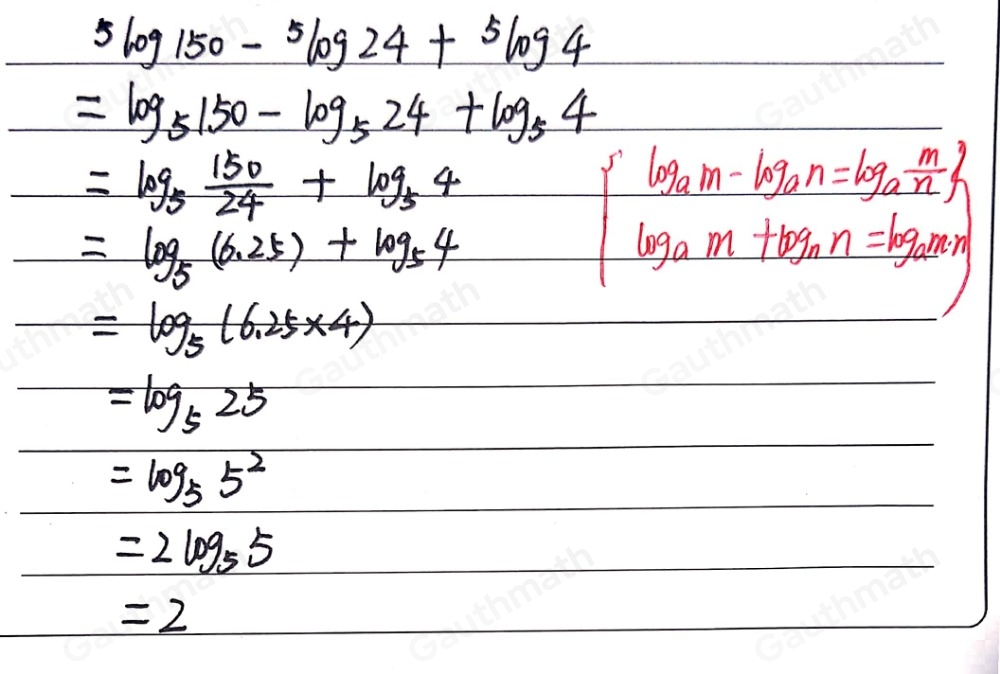 ⁵log 150 - ⁵log 24 + ⁵log 4
= log₅150 - log₅ 24 + log₅ 4
= log₅ 150/24 + log₅ 4
{ logₐ m - logₐ n = logₐ m/n }
= log₅ (6.25) + log₅ 4
logₐ m + logₙ n = logₐ m·n
= log₅ (6.25×4)
= log₅ 25
= log₅ 5²
= 2 log₅ 5
= 2
Gauthmath